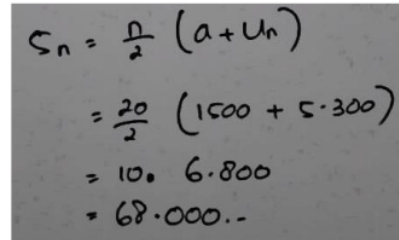 Sn = n/2 (a + Un)
= 20/2 (1500 + 5.300)
= 10. 6.800
= 68.000.-